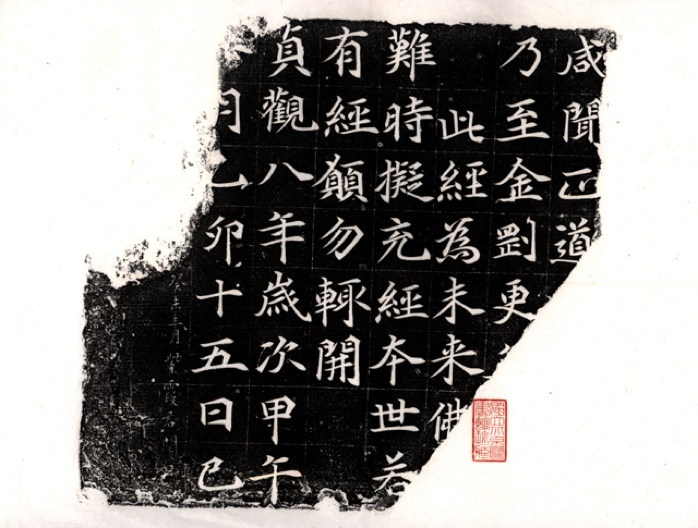 咸聞正道
乃至金剛更
此經為未来佛
難時擬充經本世若
有經願勿輙開
貞觀八年歲次甲午
月乙卯十五日己